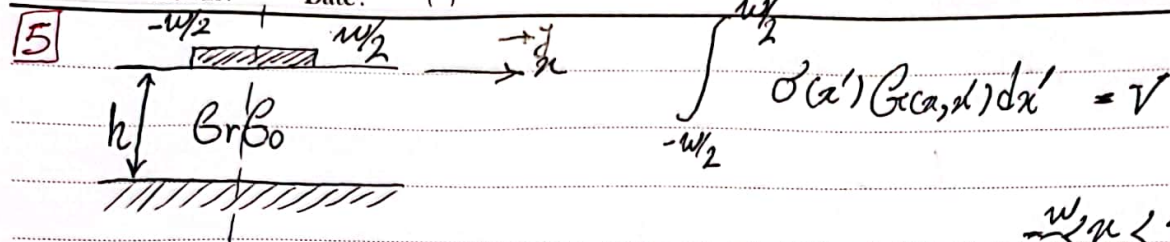 Date:
5
-w/2 w/2
→y
x
h εrε0
∫_{-w/2}^{w/2} σ(x') G(x,x') dx' = V
-w/2 < x <